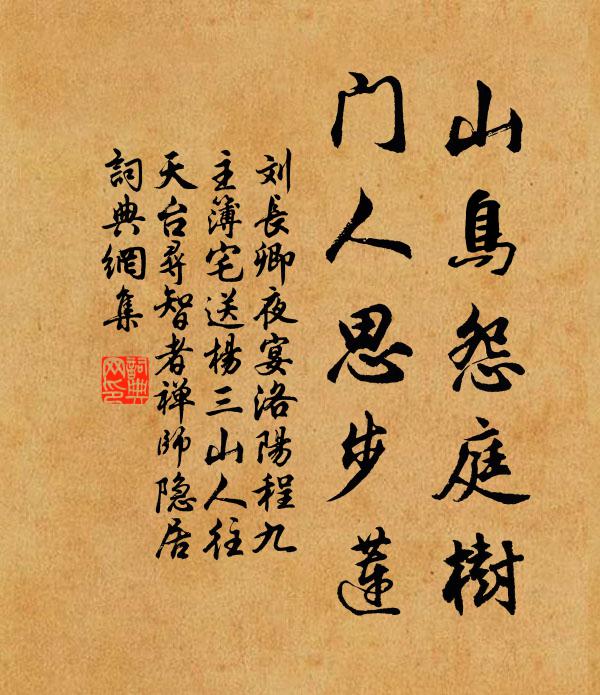 山鳥怨庭樹
門人思步蓮
刘長卿夜宴洛陽程九
主簿宅送楊三山人往
天台尋智者禅师隐居
詞典網集
詞典
网印